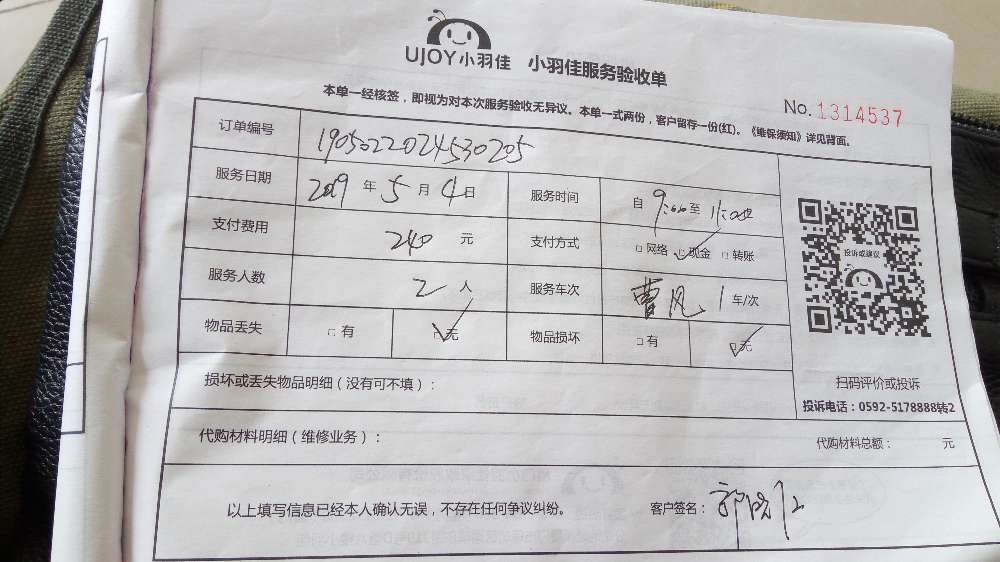 UJOY小羽佳 小羽佳服务验收单
本单一经核签，即视为对本次服务验收无异议。本单一式两份，客户留存一份(红)。《维保须知》详见背面。
No. 1314537
订单编号 1905022024530205
服务日期 2019 年 5 月 4 日 服务时间 自 9:00 至 11:00止
支付费用 240 元 支付方式 □网络 □现金 □转账
服务人数 2 人 服务车次 曹风 1 车/次
物品丢失 □有 □无 物品损坏 □有 □无
投诉或建议
扫码评价或投诉
投诉电话：0592-5178888转2
损坏或丢失物品明细（没有可不填）：
代购材料明细（维修业务）： 代购材料总额： 元
以上填写信息已经本人确认无误，不存在任何争议纠纷。 客户签名：